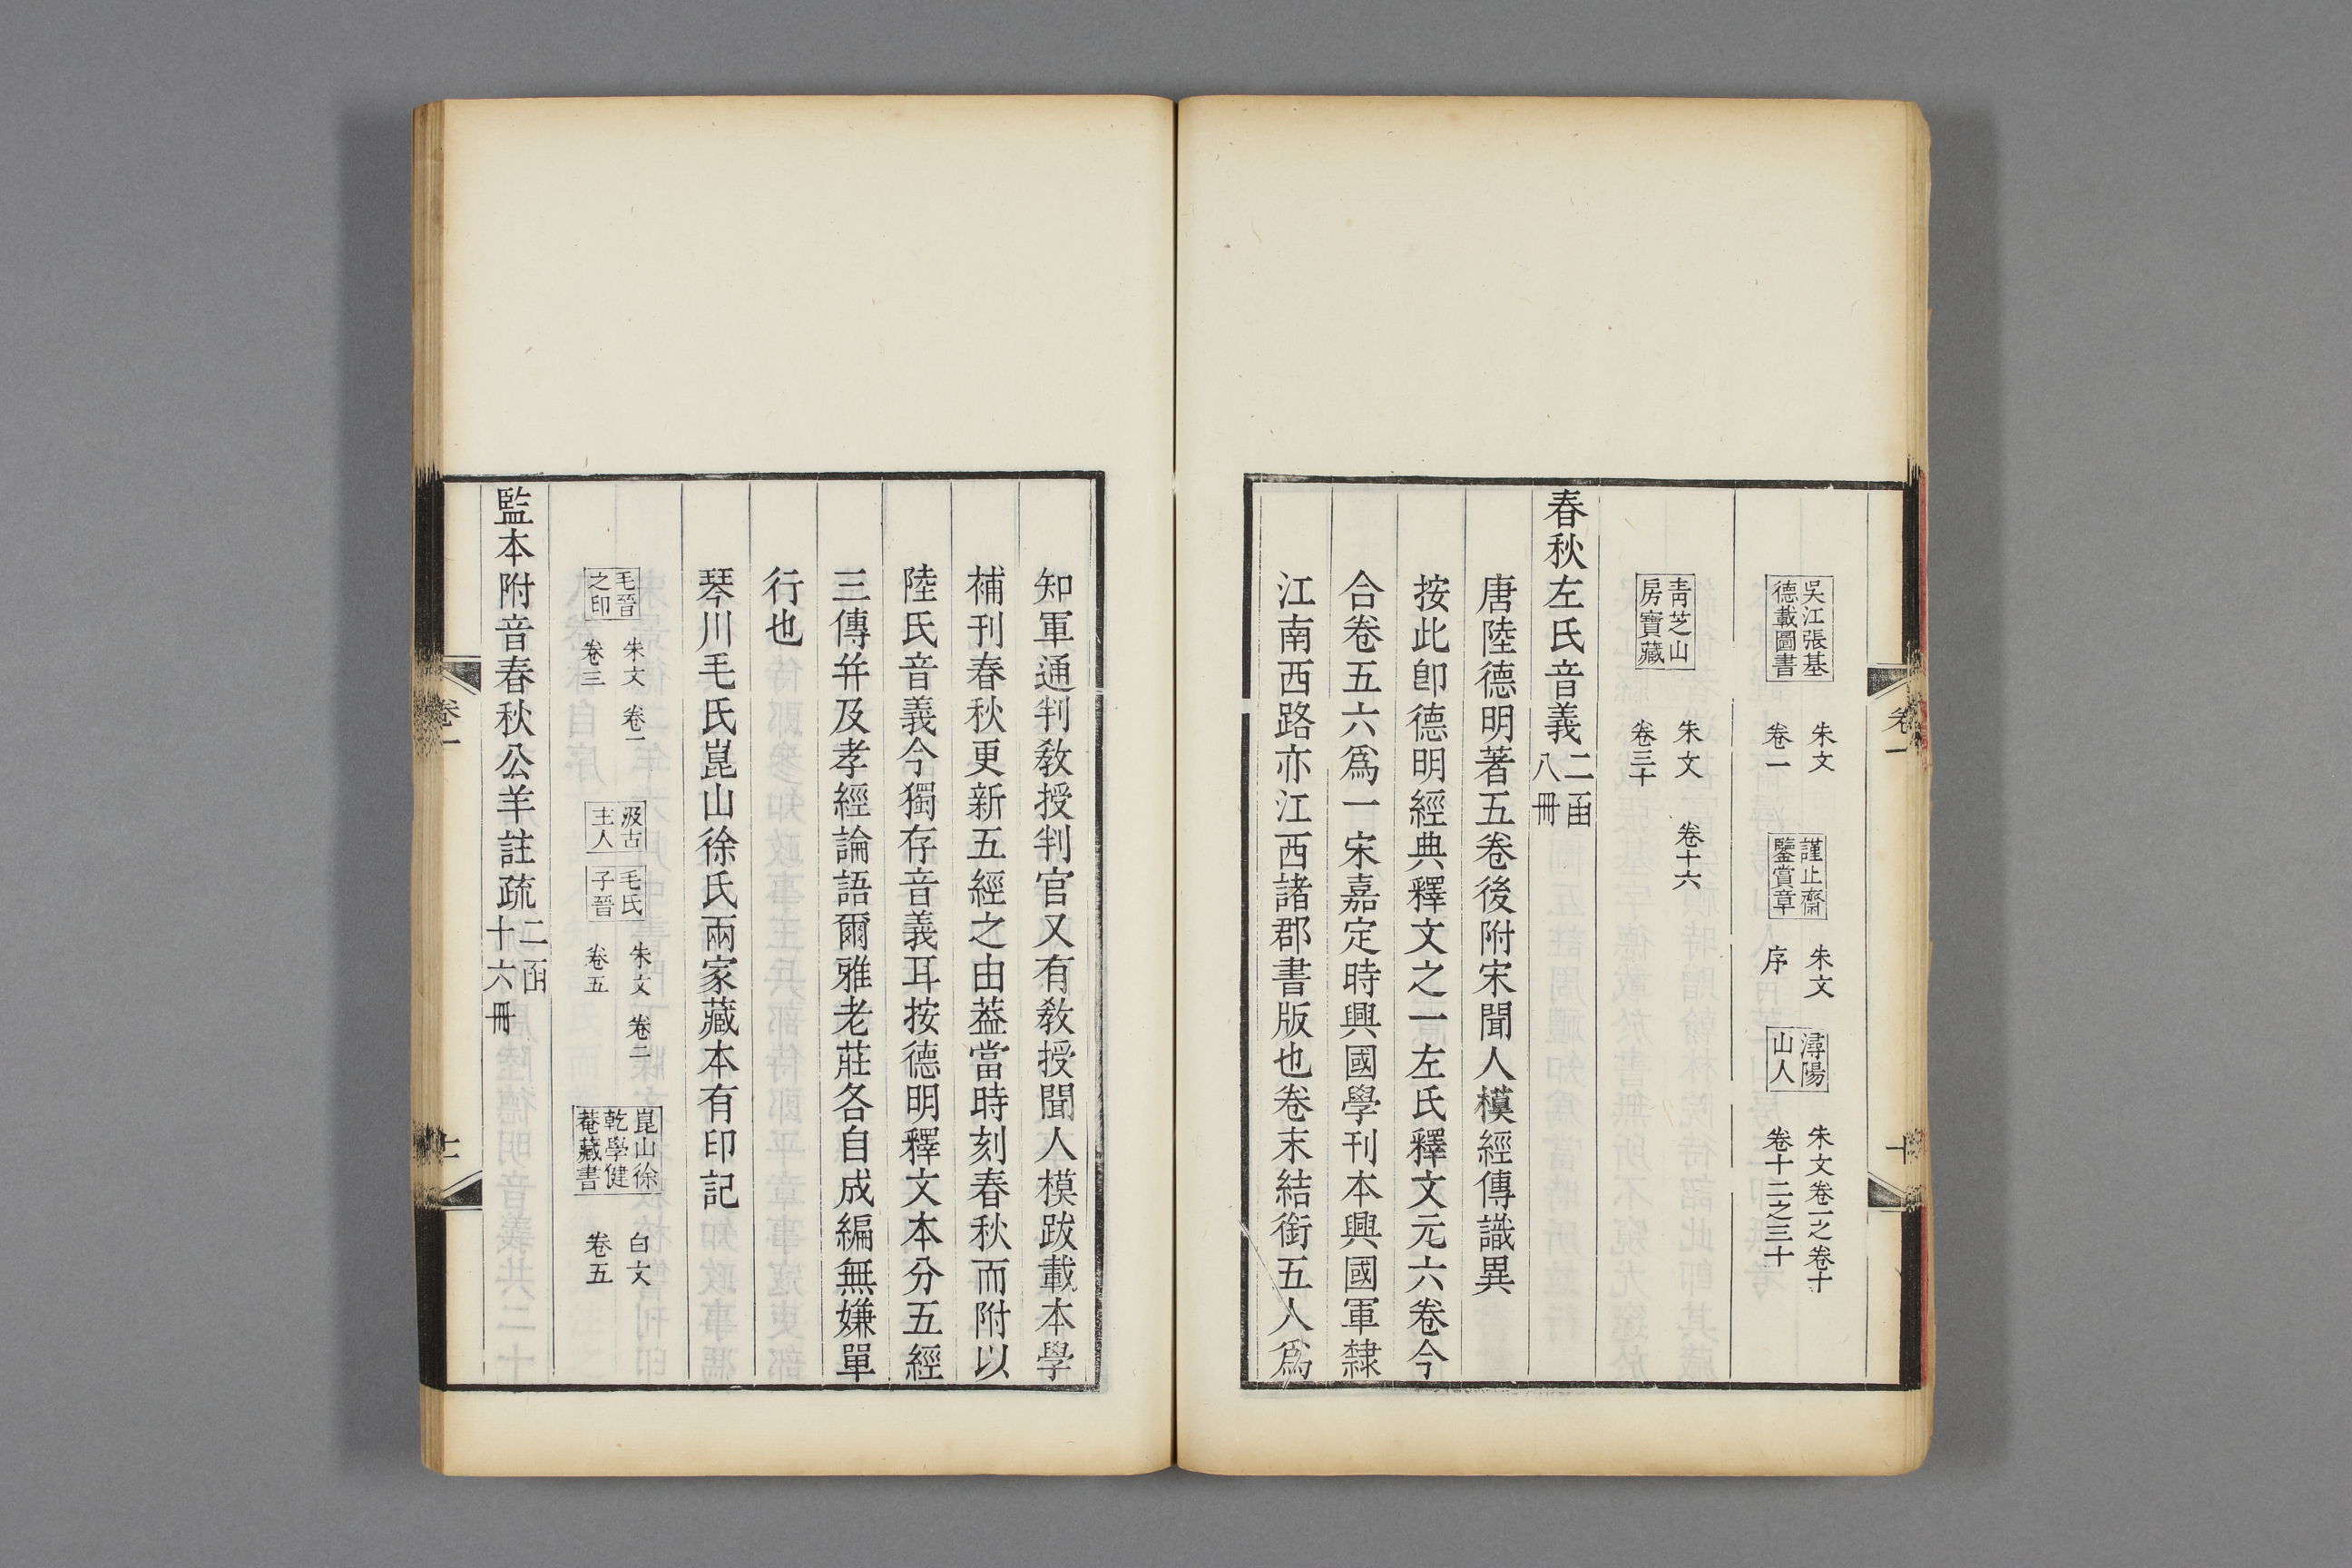 卷一
十
吳江張基
德載圖書
朱文
卷一
謹止齋
鑒賞章
朱文
序
潯陽
山人
朱文卷一之卷十
卷十二之三十
靑芝山
房寶藏
朱文 卷十六
卷三十
春秋左氏音義二函
八冊
唐陸德明著五卷後附宋聞人模經傳識異
按此卽德明經典釋文之一左氏釋文元六卷今
合卷五六爲一宋嘉定時興國學刊本興國軍隸
江南西路亦江西諸郡書版也卷末結銜五人爲
知軍通判敎授判官又有敎授聞人模跋載本學
補刊春秋更新五經之由葢當時刻春秋而附以
陸氏音義今獨存音義耳按德明釋文本分五經
三傳并及孝經論語爾雅老莊各自成編無嫌單
行也
琴川毛氏崑山徐氏兩家藏本有印記
毛晉
之印
朱文 卷一
卷三
汲古
主人
毛氏
子晉
朱文 卷二
卷五
崑山徐
乾學健
菴藏書
白文
卷五
監本附音春秋公羊註疏二函
十六冊
卷一